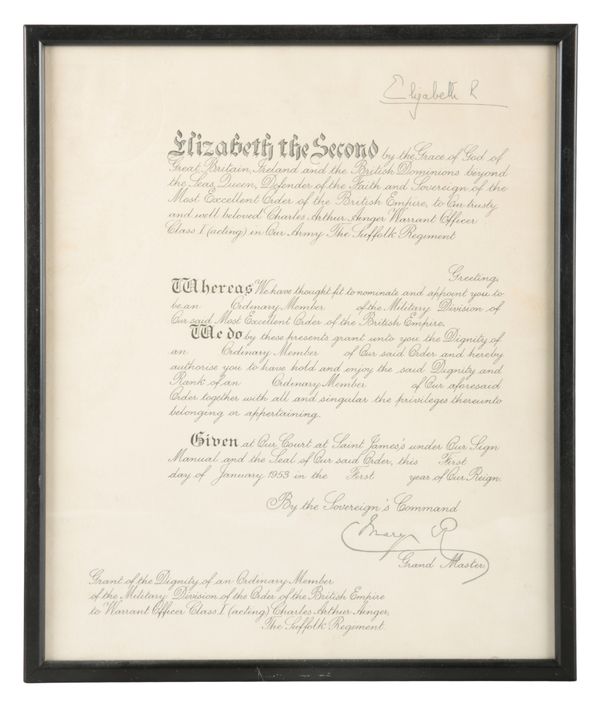 Elizabeth R
Elizabeth the Second by the Grace of God of
Great Britain, Ireland and the British Dominions beyond
the Seas, Queen, Defender of the Faith and Sovereign of the
Most Excellent Order of the British Empire, to Our trusty
and well beloved Charles Arthur Aenger Warrant Officer
Class I (acting) in Our Army The Suffolk Regiment
Greeting,
Whereas We have thought fit to nominate and appoint you to
be an Ordinary Member of the Military Division of
Our said Most Excellent Order of the British Empire,
We do by these presents grant unto you the Dignity of
an Ordinary Member of Our said Order and hereby
authorise you to have hold and enjoy the said Dignity and
Rank of an Ordinary Member of Our aforesaid
Order together with all and singular the privileges thereunto
belonging or appertaining.
Given at Our Court at Saint James's under Our Sign
Manual and the Seal of Our said Order, this First
day of January 1953 in the First year of Our Reign.
By the Sovereign's Command
Mary R
Grand Master.
Grant of the Dignity of an Ordinary Member
of the Military Division of the Order of the British Empire
to Warrant Officer Class I (acting) Charles Arthur Aenger,
The Suffolk Regiment.